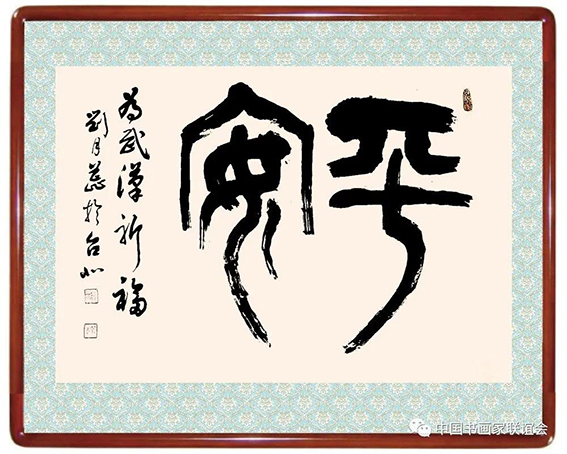 平安
為武漢祈福
劉月蕊於台北
中国书画家联谊会